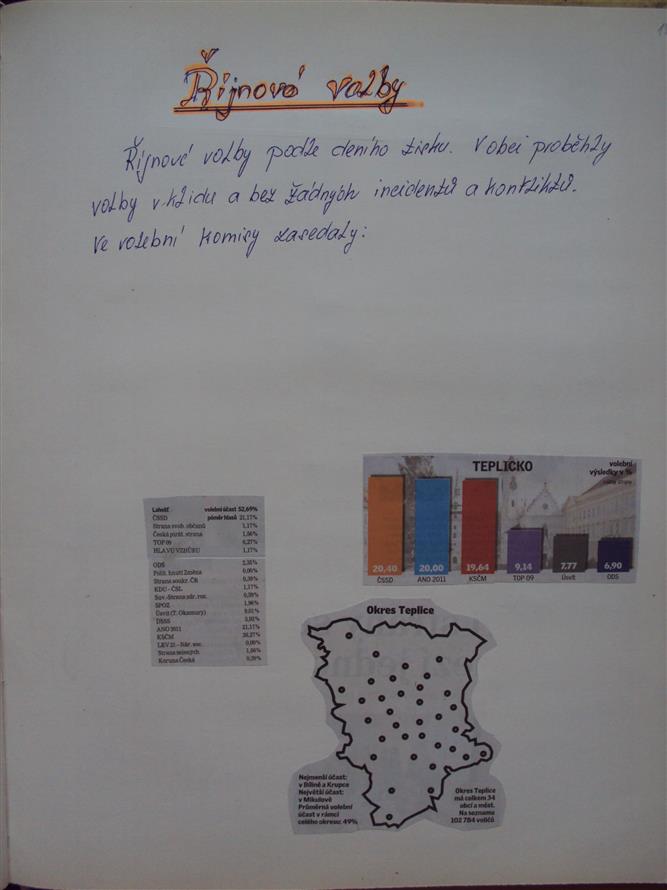 Říjnové volby
Říjnové volby podle deního tisku. V obci proběhly
volby v klidu a bez žádných incidentů a konfliktů.
Ve volební komisy zasedaly:
TEPLICKO
volební
výsledky v %
20,40
20,00
19,64
9,14
7,77
6,90
ČSSD
ANO 2011
KSČM
TOP 09
Úsvit
ODS
Lahošť volební účast 52,69%
ČSSD poměr hlasů 21,17%
Strana svob. občanů 1,17%
Česká pirát. strana 1,56%
TOP 09 6,27%
HLAVU VZHŮRU 1,17%
ODS 2,35%
Polit. hnutí Změna 0,00%
Strana soukr. ČR 0,39%
KDU - ČSL 1,17%
Suv.-Strana zdr. roz. 0,39%
SPOZ 1,96%
Úsvit (T. Okamury) 9,01%
DSSS 3,92%
ANO 2011 21,17%
KSČM 26,27%
LEV 21 – Nár. soc. 0,00%
Strana zelených 1,56%
Koruna Česká 0,39%
Okres Teplice
Nejmenší účast:
v Bílině a Krupce
Největší účast:
v Mikulově
Průměrná volební
účast v rámci
celého okresu: 49%
Okres Teplice
má celkem 34
obcí a měst.
Na seznamu
102 784 voličů